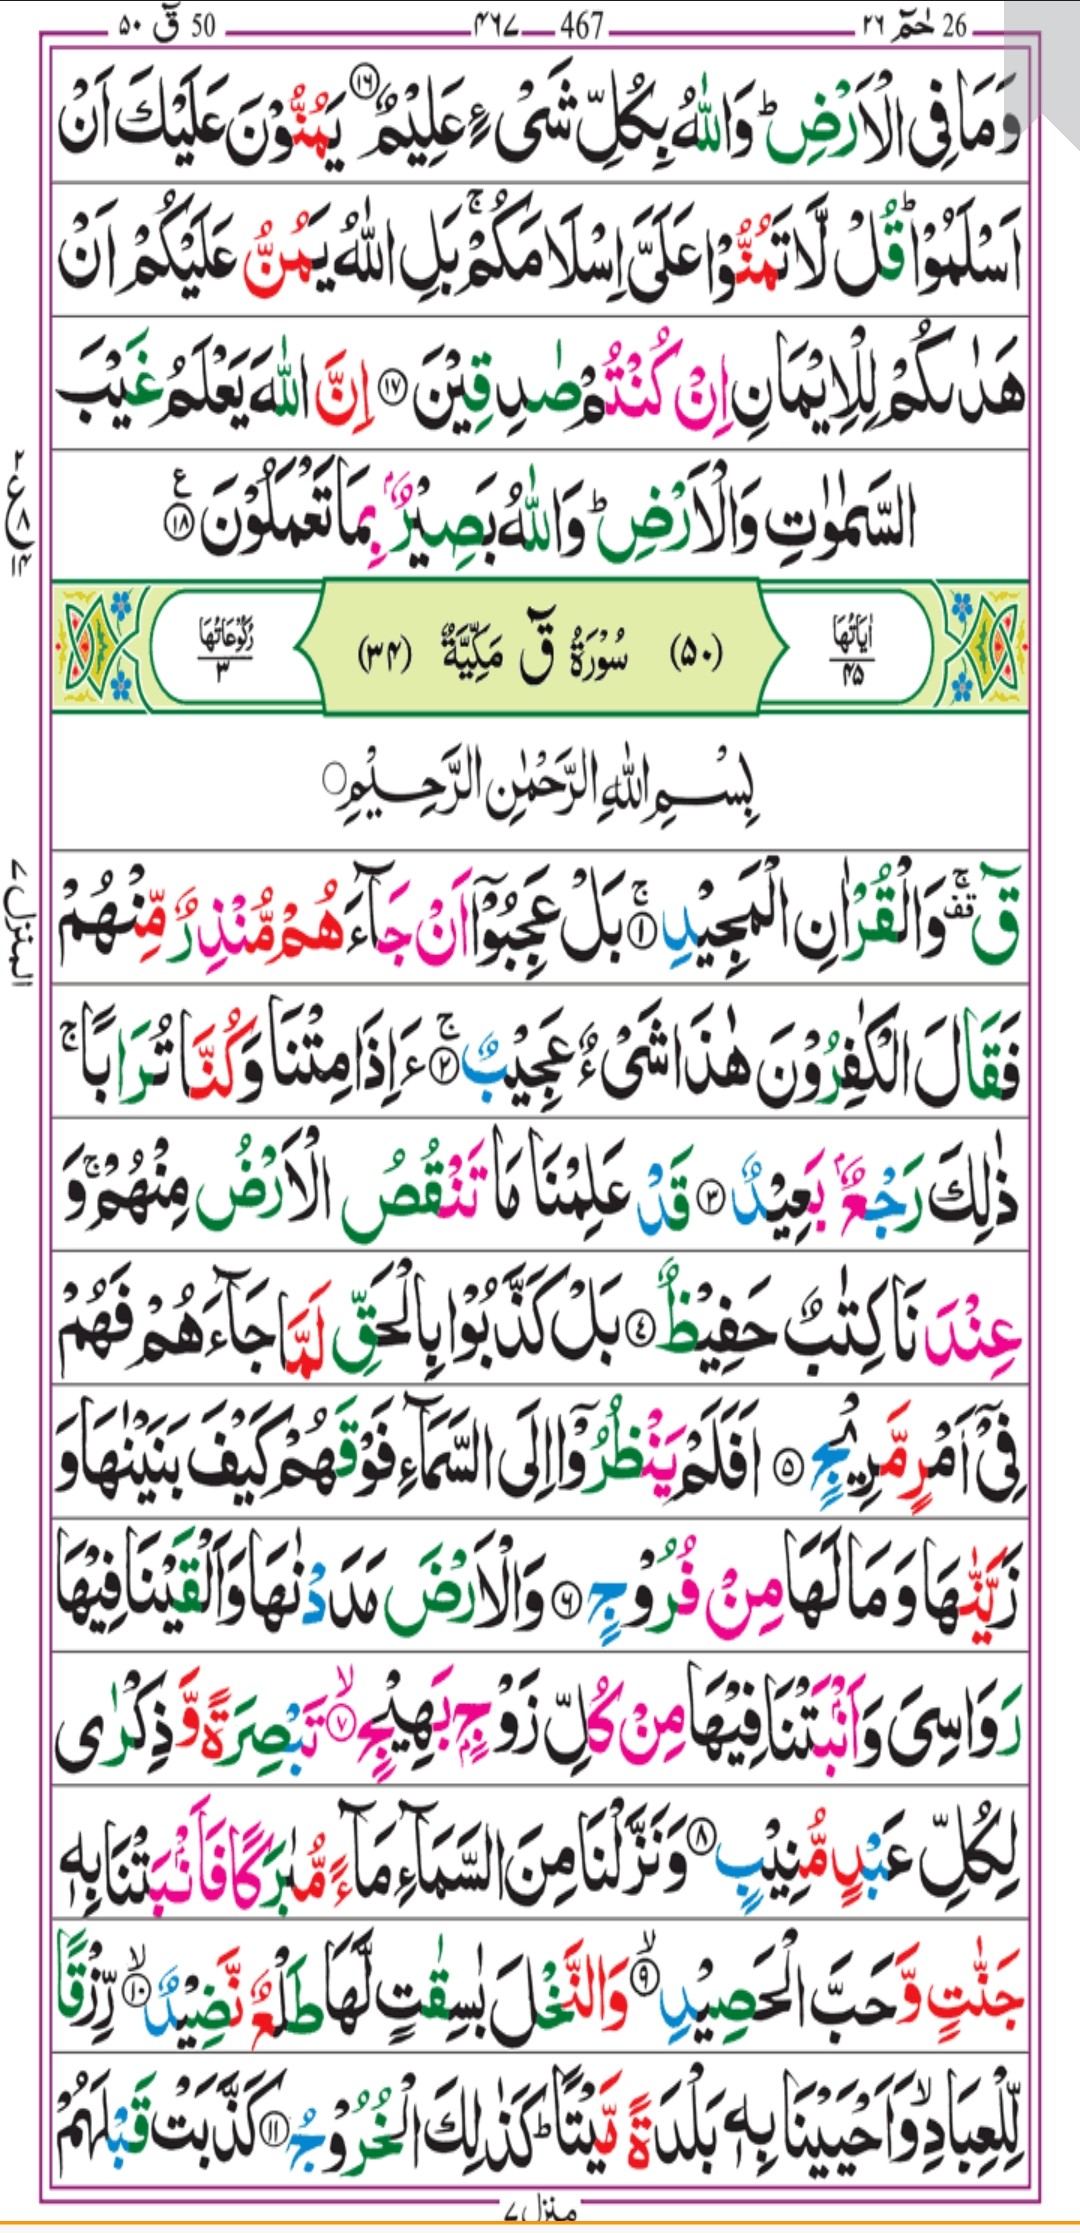 26 حٰمٓ ۲۶
467 — ۴۶۷
50 قٓ ۵۰
وَمَا فِی الْاَرْضِ ؕ وَاللّٰهُ بِكُلِّ شَیْءٍ عَلِیْمٌ ⑯ یَمُنُّوْنَ عَلَیْكَ اَنْ
اَسْلَمُوْا ؕ قُلْ لَّا تَمُنُّوْا عَلَیَّ اِسْلَامَكُمْ ۚ بَلِ اللّٰهُ یَمُنُّ عَلَیْكُمْ اَنْ
هَدٰىكُمْ لِلْاِیْمَانِ اِنْ كُنْتُمْ صٰدِقِیْنَ ⑰ اِنَّ اللّٰهَ یَعْلَمُ غَیْبَ
السَّمٰوٰتِ وَالْاَرْضِ ؕ وَاللّٰهُ بَصِیْرٌۢ بِمَا تَعْمَلُوْنَ ⑱ ع
۲
ع ۸
۱۴
اٰیَاتُهَا ۴۵
(۵۰) سُوْرَةُ قٓ مَكِّیَّةٌ (۳۴)
رُكُوْعَاتُهَا ۳
بِسْمِ اللّٰهِ الرَّحْمٰنِ الرَّحِیْمِ ○
قٓ ۚ قف وَالْقُرْاٰنِ الْمَجِیْدِ ① ۚ بَلْ عَجِبُوْۤا اَنْ جَآءَهُمْ مُّنْذِرٌ مِّنْهُمْ
المنزل ۷
فَقَالَ الْكٰفِرُوْنَ هٰذَا شَیْءٌ عَجِیْبٌ ② ۚ ءَاِذَا مِتْنَا وَكُنَّا تُرَابًا ۚ
ذٰلِكَ رَجْعٌۢ بَعِیْدٌ ③ قَدْ عَلِمْنَا مَا تَنْقُصُ الْاَرْضُ مِنْهُمْ ۚ وَ
عِنْدَنَا كِتٰبٌ حَفِیْظٌ ④ بَلْ كَذَّبُوْا بِالْحَقِّ لَمَّا جَآءَهُمْ فَهُمْ
فِیْۤ اَمْرٍ مَّرِیْجٍ ⑤ اَفَلَمْ یَنْظُرُوْۤا اِلَی السَّمَآءِ فَوْقَهُمْ كَیْفَ بَنَیْنٰهَا وَ
زَیَّنّٰهَا وَمَا لَهَا مِنْ فُرُوْجٍ ⑥ وَالْاَرْضَ مَدَدْنٰهَا وَاَلْقَیْنَا فِیْهَا
رَوَاسِیَ وَاَنْۢبَتْنَا فِیْهَا مِنْ كُلِّ زَوْجٍۭ بَهِیْجٍ ⑦ ۙ تَبْصِرَةً وَّذِكْرٰی
لِكُلِّ عَبْدٍ مُّنِیْبٍ ⑧ وَنَزَّلْنَا مِنَ السَّمَآءِ مَآءً مُّبٰرَكًا فَاَنْۢبَتْنَا بِهٖ
جَنّٰتٍ وَّحَبَّ الْحَصِیْدِ ⑨ ۙ وَالنَّخْلَ بٰسِقٰتٍ لَّهَا طَلْعٌ نَّضِیْدٌ ⑩ ۙ رِّزْقًا
لِّلْعِبَادِ ۙ وَاَحْیَیْنَا بِهٖ بَلْدَةً مَّیْتًا ؕ كَذٰلِكَ الْخُرُوْجُ ⑪ كَذَّبَتْ قَبْلَهُمْ
منزل ۷